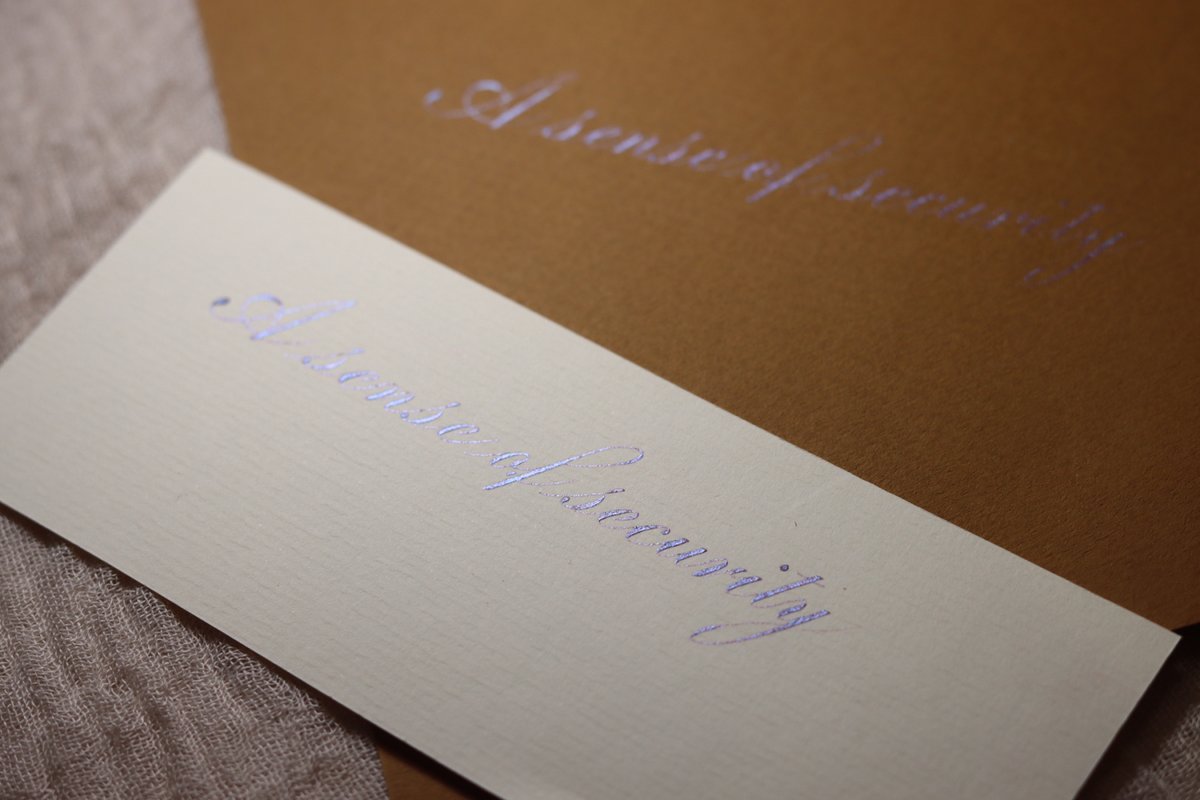 A sense of security
A sense of security